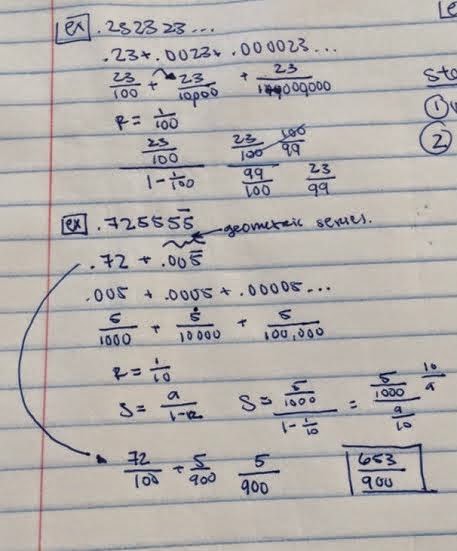 ex .232323...
.23 + .0023 + .000023...
23/100 + 23/10,000 + 23/1000000
R = 1/100
(23/100)/(1 - 1/100) (23/100)/(99/100) 100/99 23/99
ex .725555̅ geometric series.
.72 + .005̅
.005 + .0005 + .00005...
5/1000 + 5/10000 + 5/100,000
R = 1/10
S = a/(1-R) S = (5/1000)/(1 - 1/10) = (5/1000)/(9/10) 10/9
72/100 + 5/900 5/900 653/900
①
②